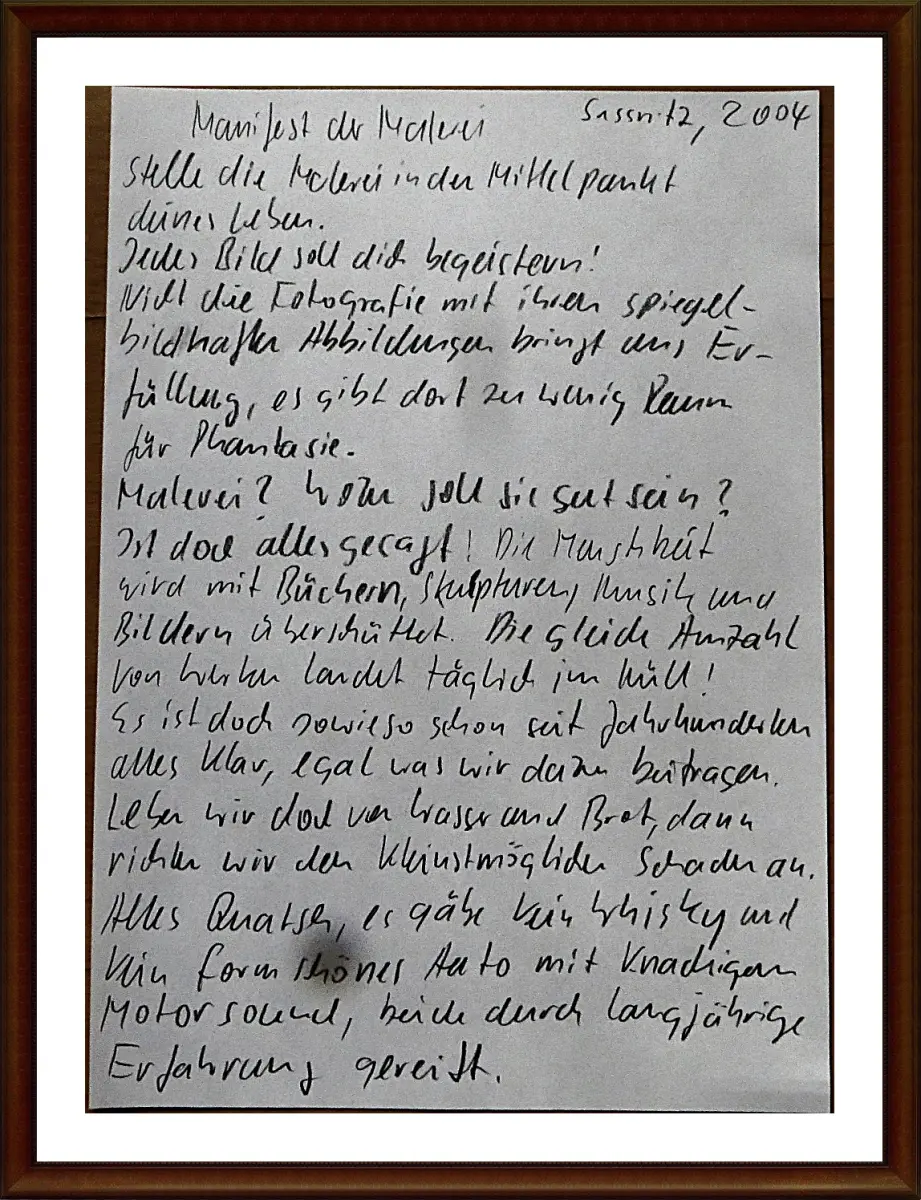 Manifest der Malerei Sassnitz, 2004
Stelle die Malerei in den Mittelpunkt
deines Leben.
Jedes Bild soll dich begeistern!
Nicht die Fotografie mit ihren spiegel-
bildhaften Abbildungen bringt uns Er-
füllung, es gibt dort zu wenig Raum
für Phantasie.
Malerei? Wozu soll sie gut sein?
Ist doch alles gesagt! Die Menschheit
wird mit Büchern, Skulpturen, Musik und
Bildern überschüttet. Die gleiche Anzahl
von Werken landet täglich im Müll!
Es ist doch sowieso schon seit Jahrhunderten
alles klar, egal was wir dazu beitragen.
Leben wir doch von Wasser und Brot, dann
richten wir den kleinstmöglichen Schaden an.
Alles Quatsch, es gäbe kein Whisky und
kein formschönes Auto mit knackigem
Motorsound, beide durch langjährige
Erfahrung gereift.